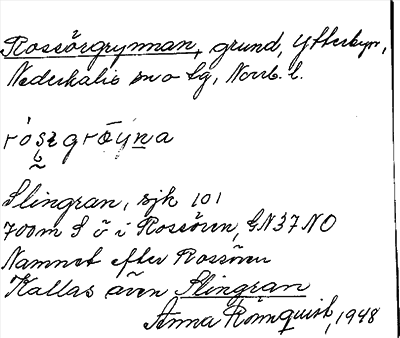 Rossörgrynnan, grund, Ytterbyn,
Nederkalix sn o tg, Norrb. l.
Slingran, sjk 101
700 m S ö i Rossören, GN37NO
Namnet efter Rossören
Kallas även Slingran
Anna Römquist, 1948